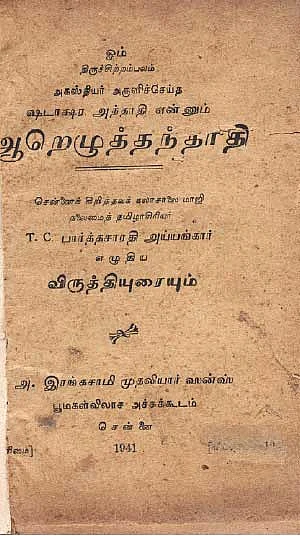 ஓம்
திருச்சிற்றம்பலம்
அகஸ்தியர் அருளிச்செய்த
ஷடாக்ஷர அந்தாதி என்னும்
ஆறெழுத்தந்தாதி
சென்னைக் கிறித்தவக் கலாசாலை மாஜி
தலைமைத் தமிழாசிரியர்
T. C. பார்த்தசாரதி அய்யங்கார்
எழுதிய
விருத்தியுரையும்
அ. இரங்கசாமி முதலியார் ஸன்ஸ்
பூமகள்விலாச அச்சுக்கூடம்
சென்னை
ரிமை] 1941